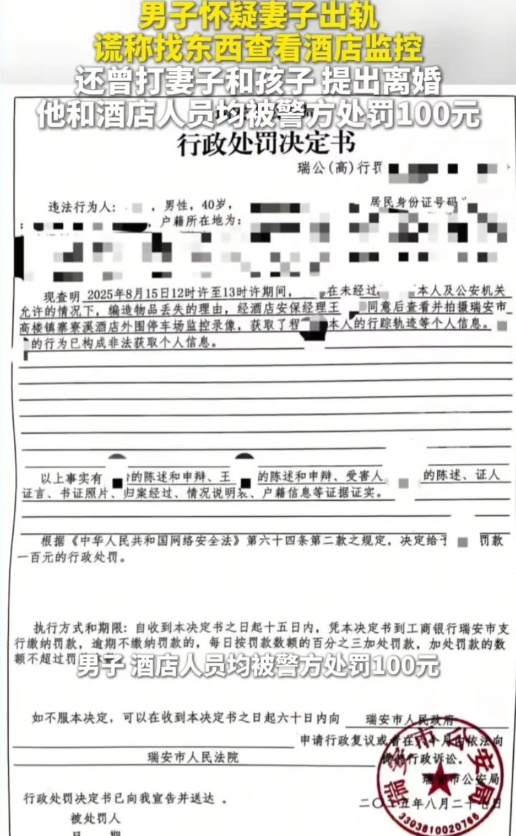 男子怀疑妻子出轨
谎称找东西查看酒店监控
还曾打妻子和孩子 提出离婚
他和酒店人员均被警方处罚100元
行政处罚决定书
瑞公(高)行罚
违法行为人: ,男性,40岁, 居民身份证号码
,户籍所在地为:
现查明 2025年8月15日12时许至13时许期间, 在未经过 本人及公安机关
允许的情况下,编造物品丢失的理由,经酒店安保经理王 同意后查看并拍摄瑞安市
高楼镇寨寮溪酒店外围停车场监控录像,获取了程 本人的行踪轨迹等个人信息。
的行为已构成非法获取个人信息。
以上事实有 的陈述和申辩、王 的陈述和申辩、受害人 的陈述、证人
证言、书证照片、归案经过、情况说明 、户籍信息等证据证实。
根据《中华人民共和国网络安全法》第六十四条第二款之规定,决定给予 罚款
一百元的行政处罚。
执行方式和期限:自收到本决定书之日起十五日内,凭本决定书到工商银行瑞安市支
行缴纳罚款,逾期不缴纳罚款的,每日按罚款数额的百分之三加处罚款,加处罚款的数
额不超过罚
男子 酒店人员均被警方处罚100元
如不服本决定,可以在收到本决定书之日起六十日内向 瑞安市人民政府
申请行政复议或者在 个月内依法向
瑞安市人民法院 提起行政诉讼。
瑞安市公安局
二〇二五年八月二十七日
瑞安市公安局
3303810020766
行政处罚决定书已向我宣告并送达。
被处罚人
日 期